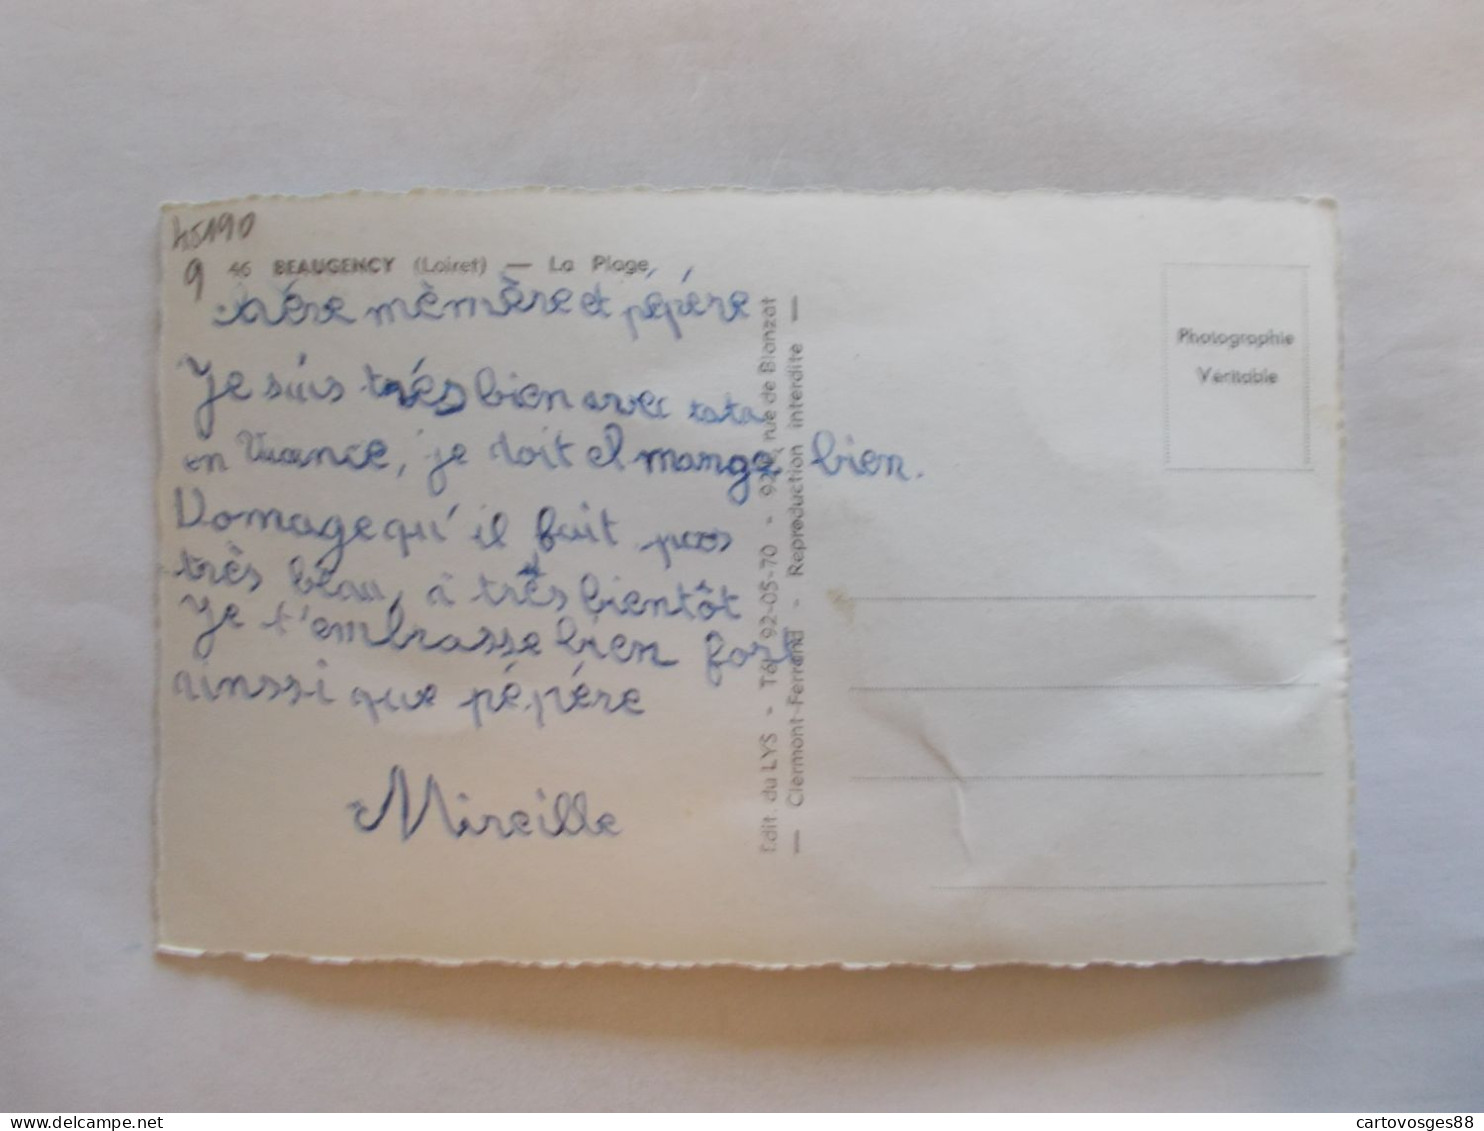 45190
9
46 BEAUGENCY (Loiret) — La Plage
chére mèmère et pépére
Je suis trés bien avec tata
en Vacance, je doit et mange bien.
Domage qu'il fait pas
très beau, à très bientôt
Je t'embrasse bien fort
ainssi que pépére
Mireille
Edit. du LYS - Tél. 92-05-70 - 92, rue de Blanzat
— Clermont-Ferrand - Reproduction interdite —
Photographie
Véritable
cartovosges88